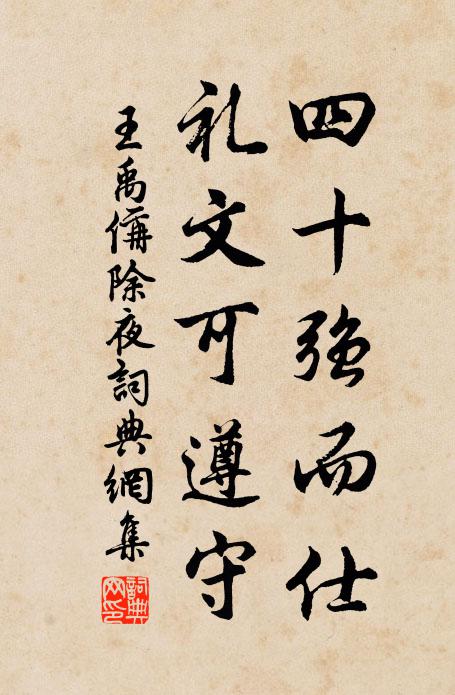 四十強而仕
礼文可遵守
王禹偁除夜詞典網集
詞典网印